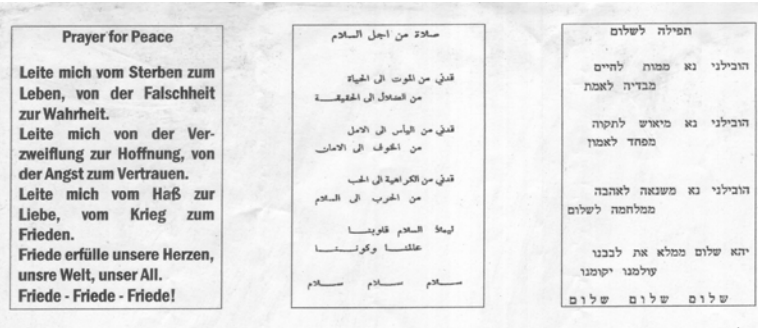 Prayer for Peace
Leite mich vom Sterben zum
Leben, von der Falschheit
zur Wahrheit.
Leite mich von der Ver-
zweiflung zur Hoffnung, von
der Angst zum Vertrauen.
Leite mich vom Haß zur
Liebe, vom Krieg zum
Frieden.
Friede erfülle unsere Herzen,
unsre Welt, unser All.
Friede - Friede - Friede!
صلاة من اجل السلام
قدني من الموت الى الحياة
من الضلال الى الحقيقـــة
قدني من اليأس الى الامل
من الخوف الى الامان
قدني من الكراهية الى الحب
من الحرب الى السلام
ليملأ السلام قلوبنـــا
عالمنـــا وكوننـــا
ســـلام ســـلام ســـلام
תפילה לשלום
הובילני נא ממות לחיים
מבדיה לאמת
הובילני נא מיאוש לתקוה
מפחד לאמון
הובילני נא משנאה לאהבה
ממלחמה לשלום
יהא שלום ממלא את לבבנו
עולמנו יקומנו
שלום שלום שלום